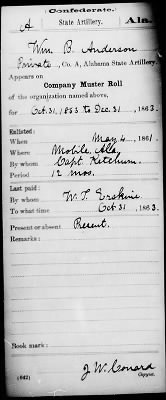 Confederate.
A State Artillery. Ala.
Wm B. Anderson
Private, Co. A, Alabama State Artillery.
Appears on
Company Muster Roll
of the organization named above,
for Oct. 31, 1863 to Dec. 31, 1863.
Enlisted:
When May 4, 1861.
Where Mobile, Ala.
By whom Capt. Ketchum.
Period 12 mos.
Last paid:
By whom W. T. Erskine
To what time Oct 31, 1863.
Present or absent Present.
Remarks:
Book mark:
J. W. Conard
(642) Copyist.